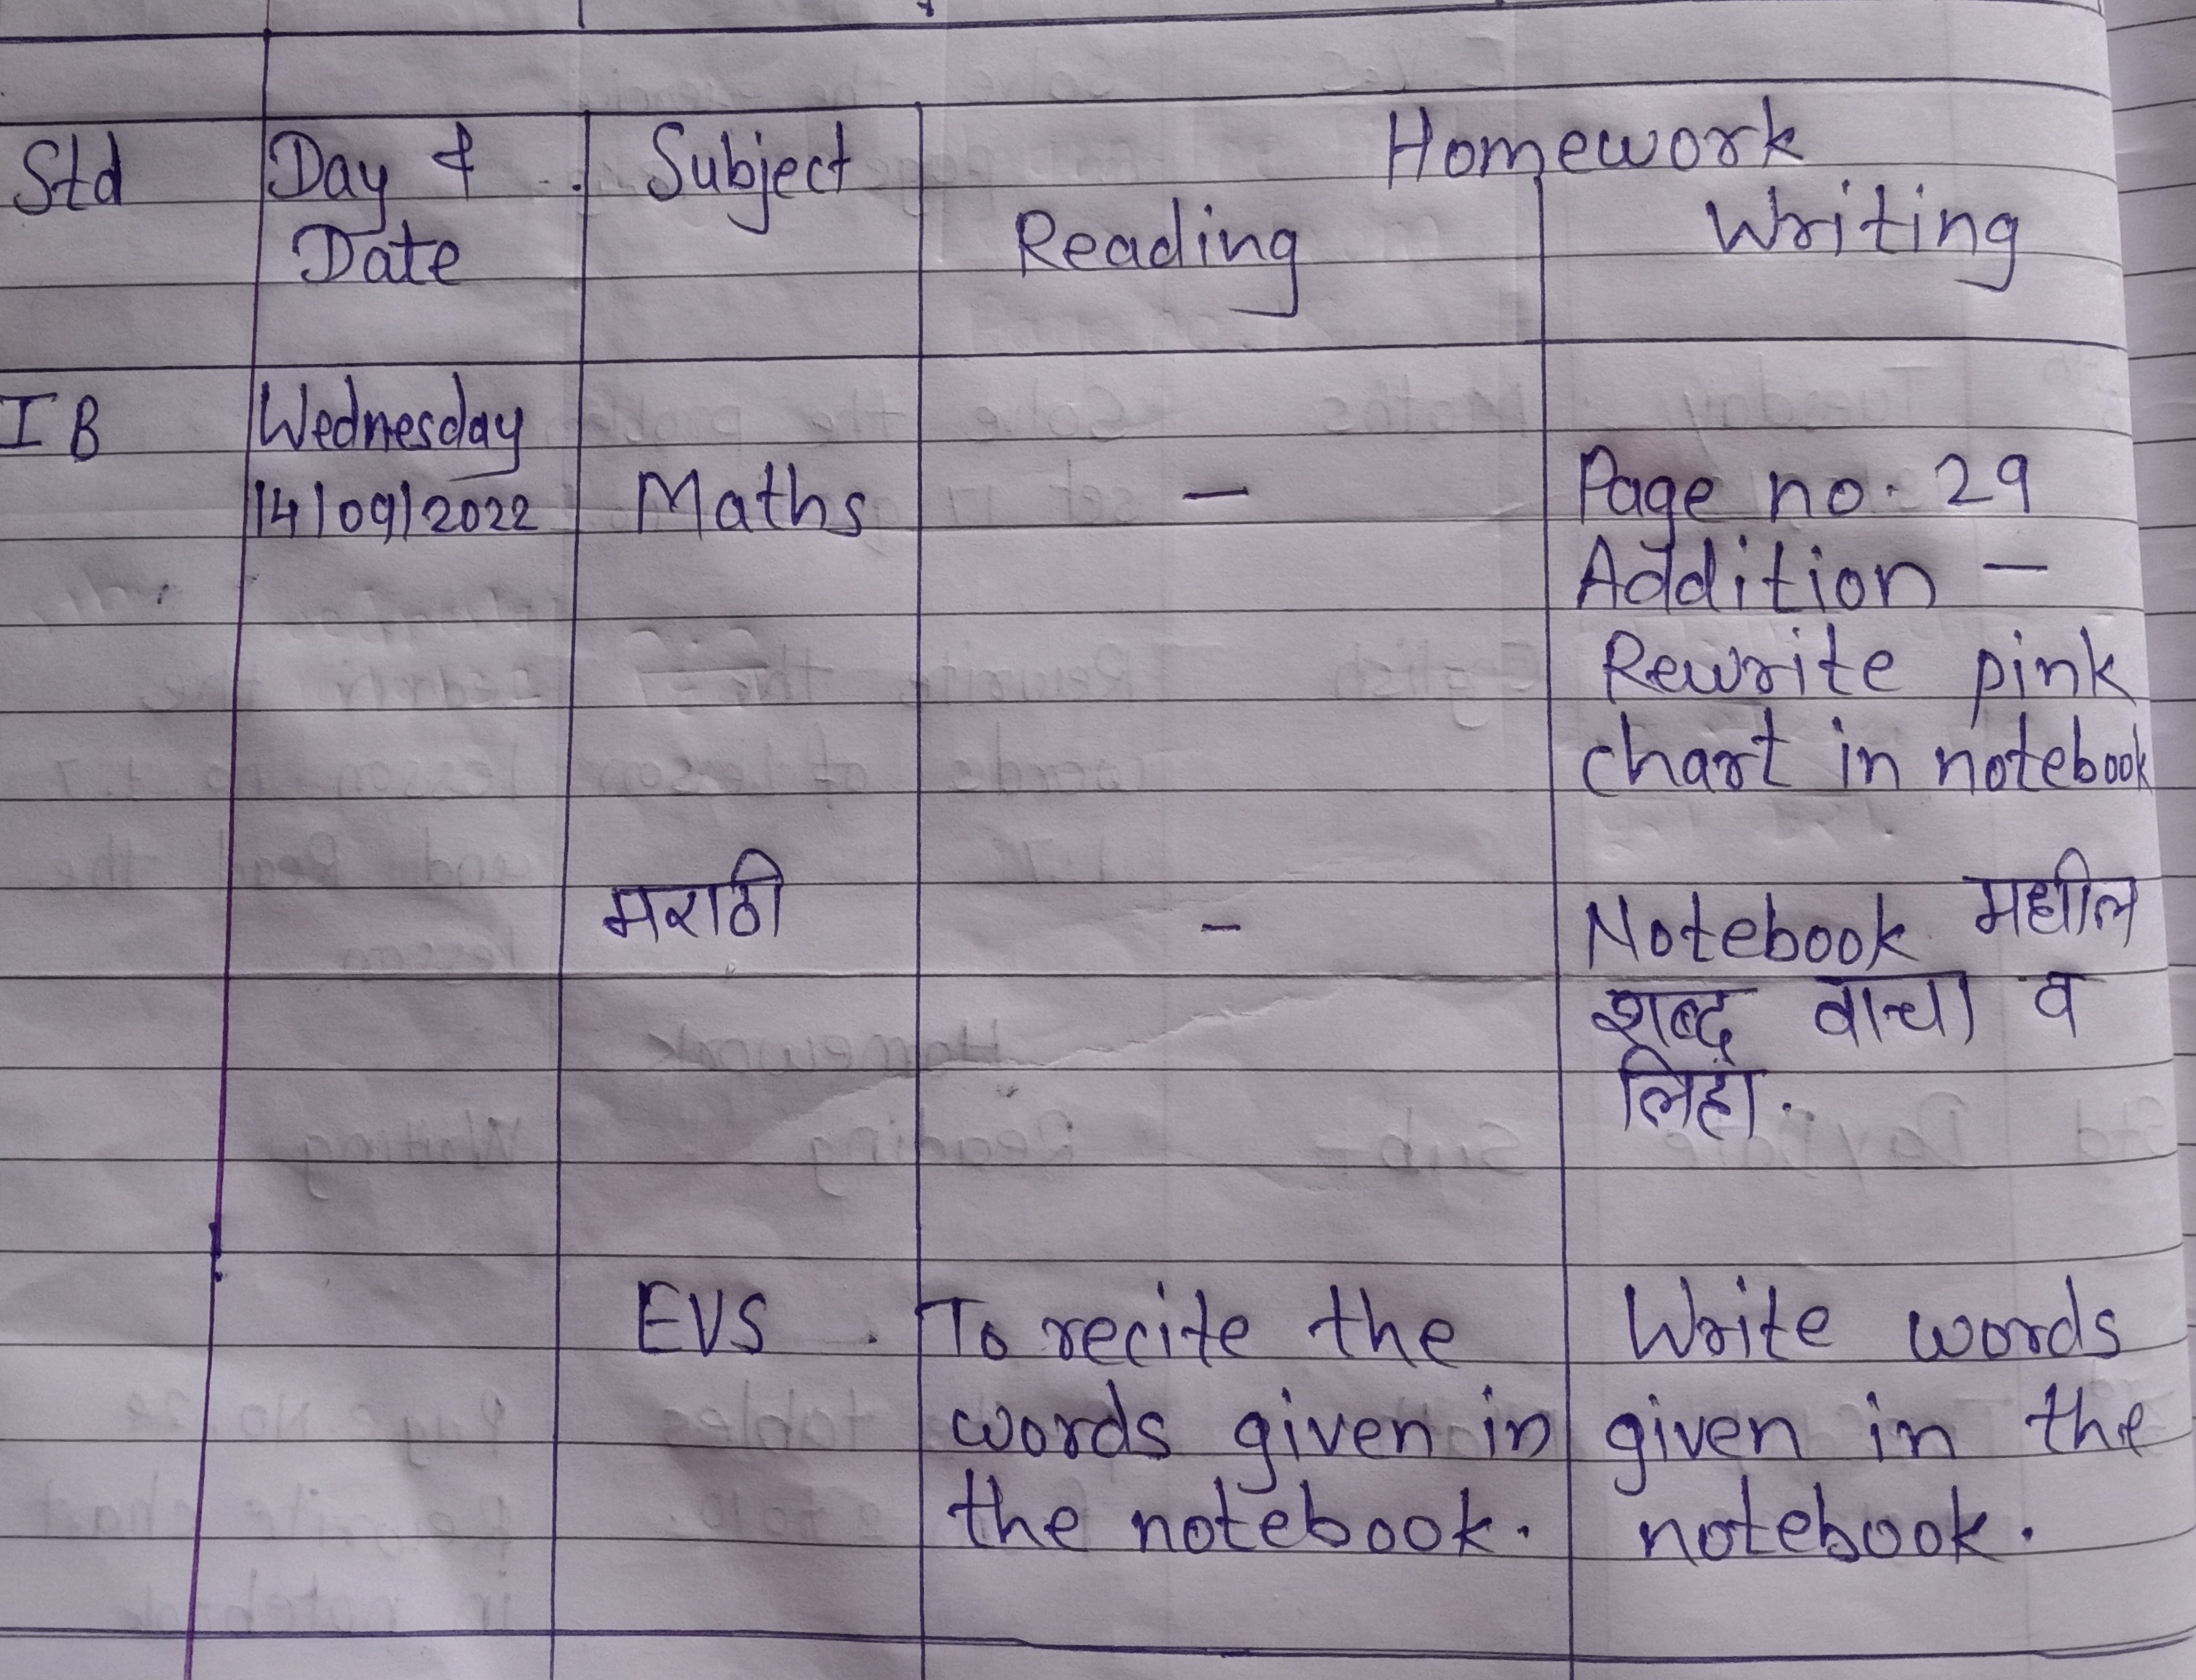 Homework
Std Day & Subject Reading Writing
Date
IB Wednesday
14/09/2022 Maths — Page no. 29
Addition —
Rewrite pink
chart in notebook
मराठी - Notebook मधील
शब्द वाचा व
लिहा.
EVS To recite the Write words
words given in given in the
the notebook. notebook.